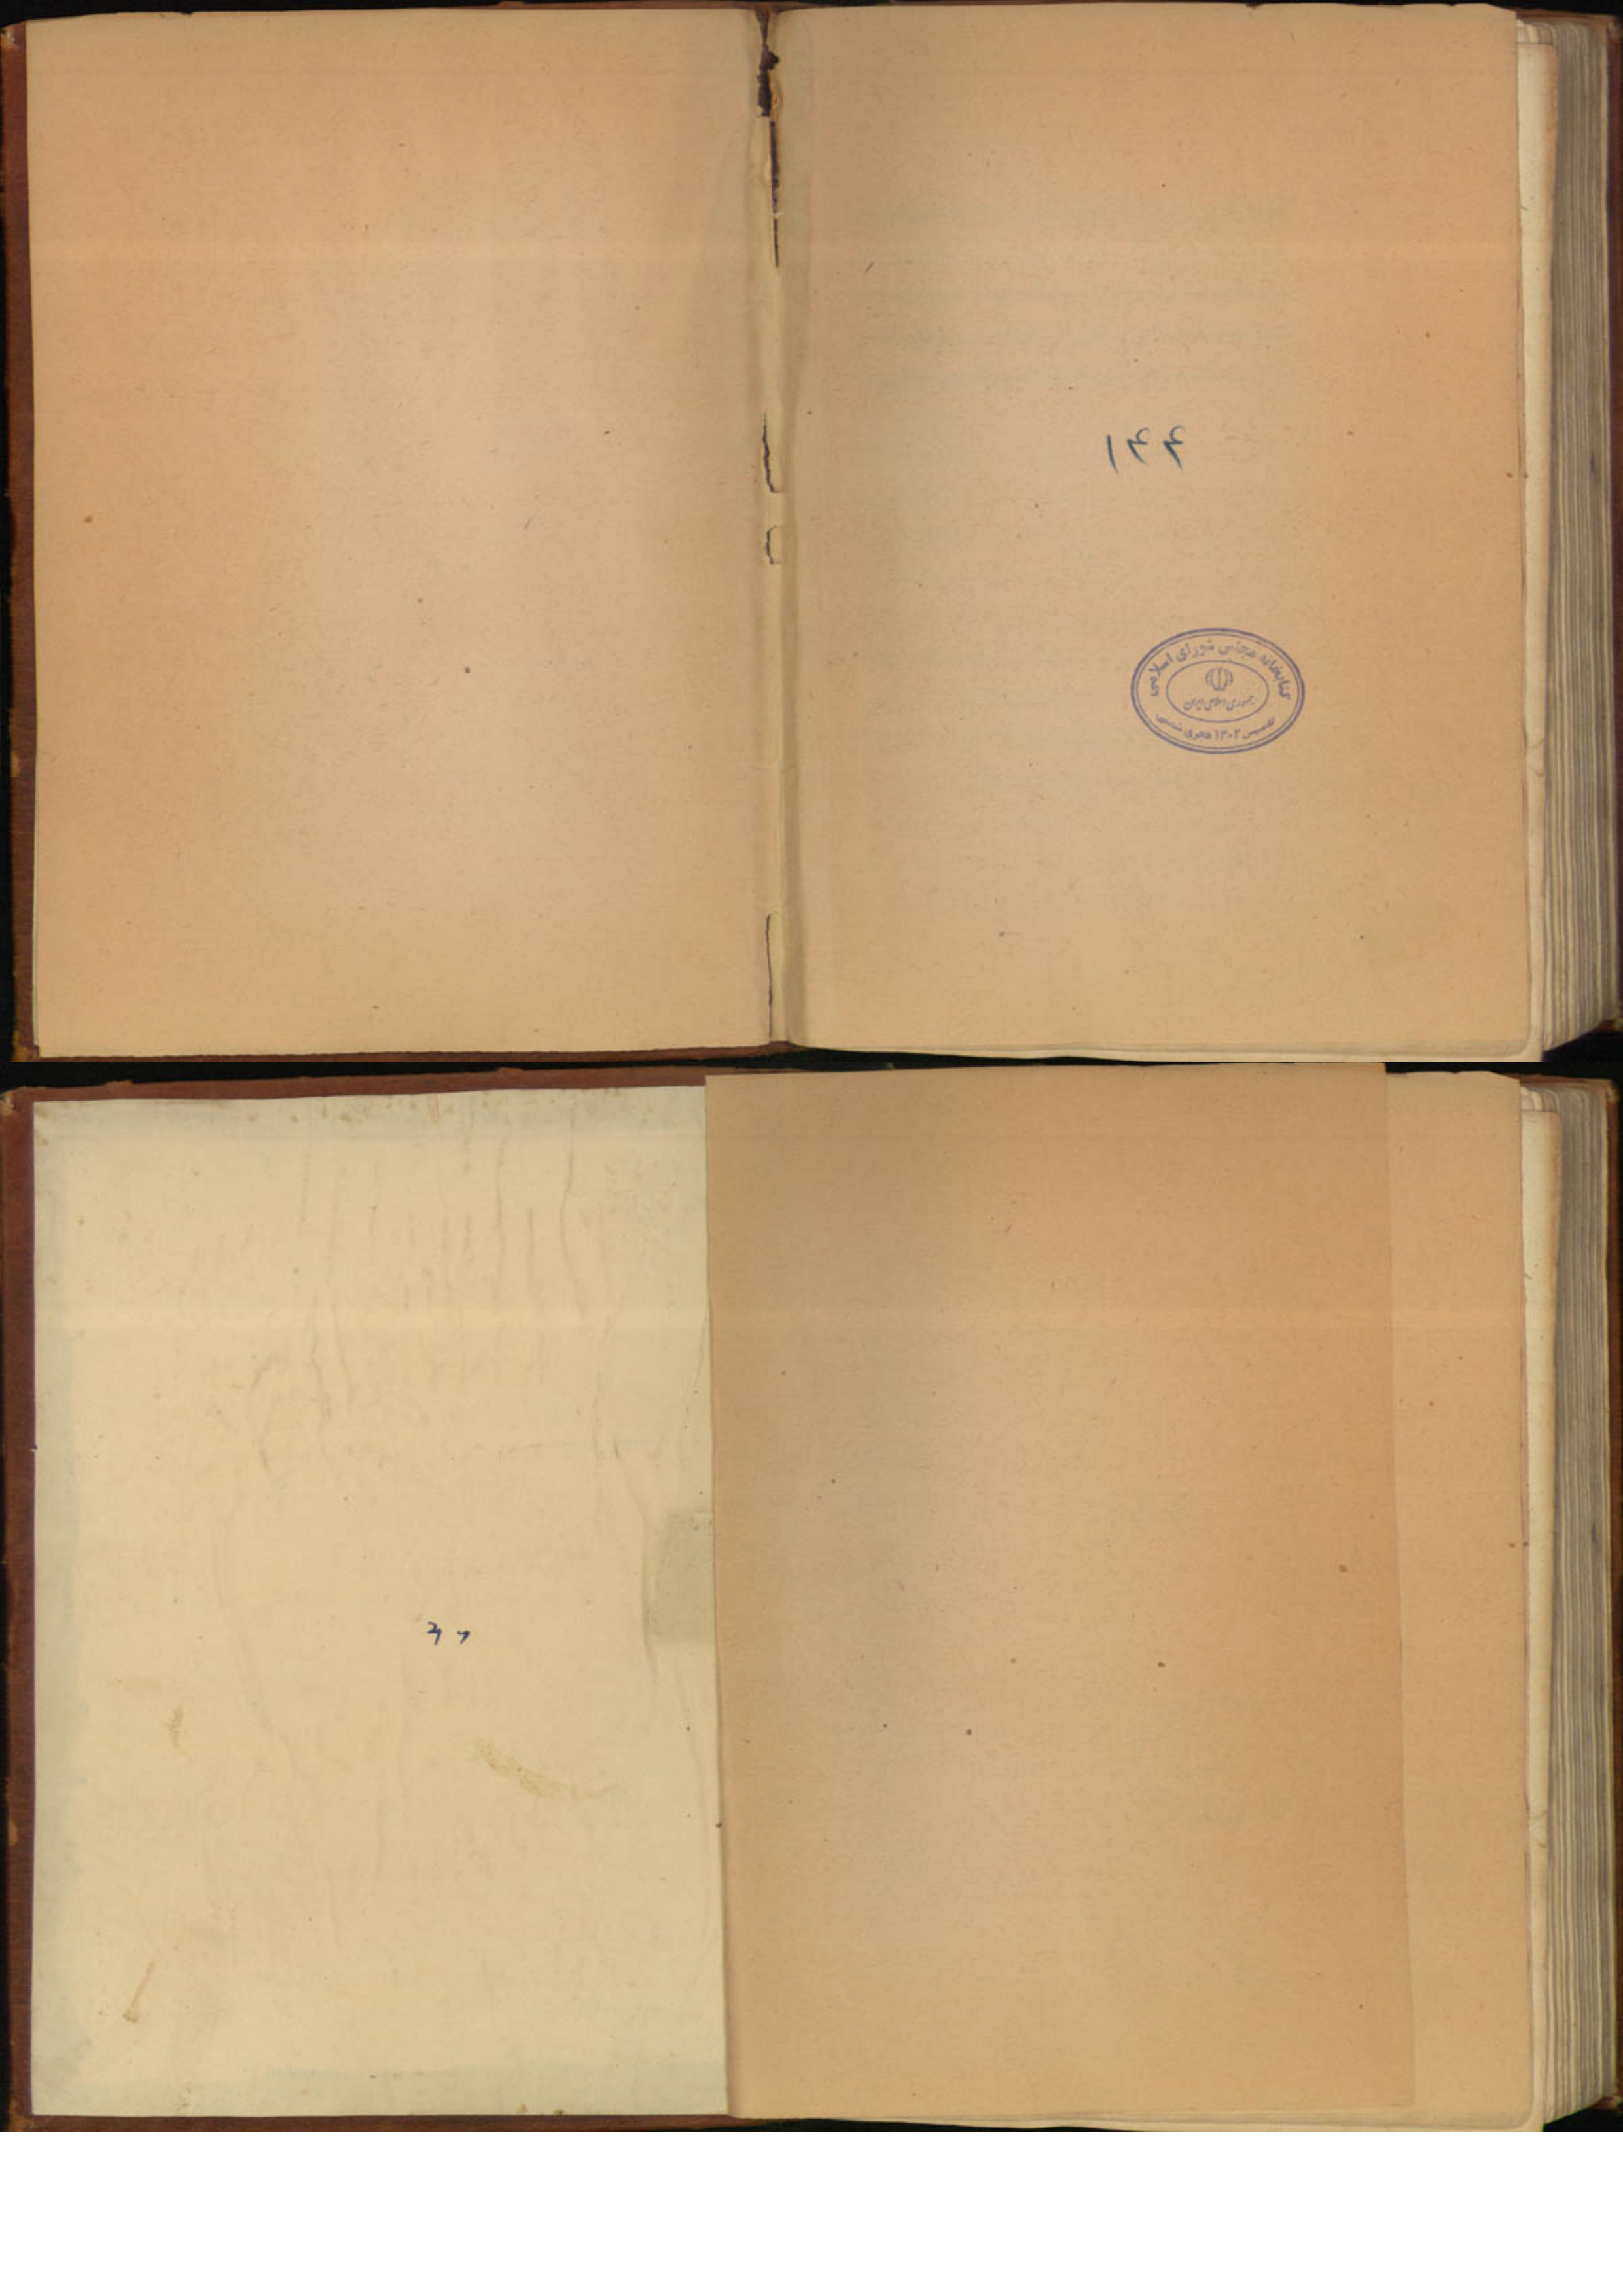 ۱۴۴
کتابخانه مجلس شورای اسلامی
جمهوری اسلامی ایران
تاسیس ۱۳۰۲ هجری شمسی